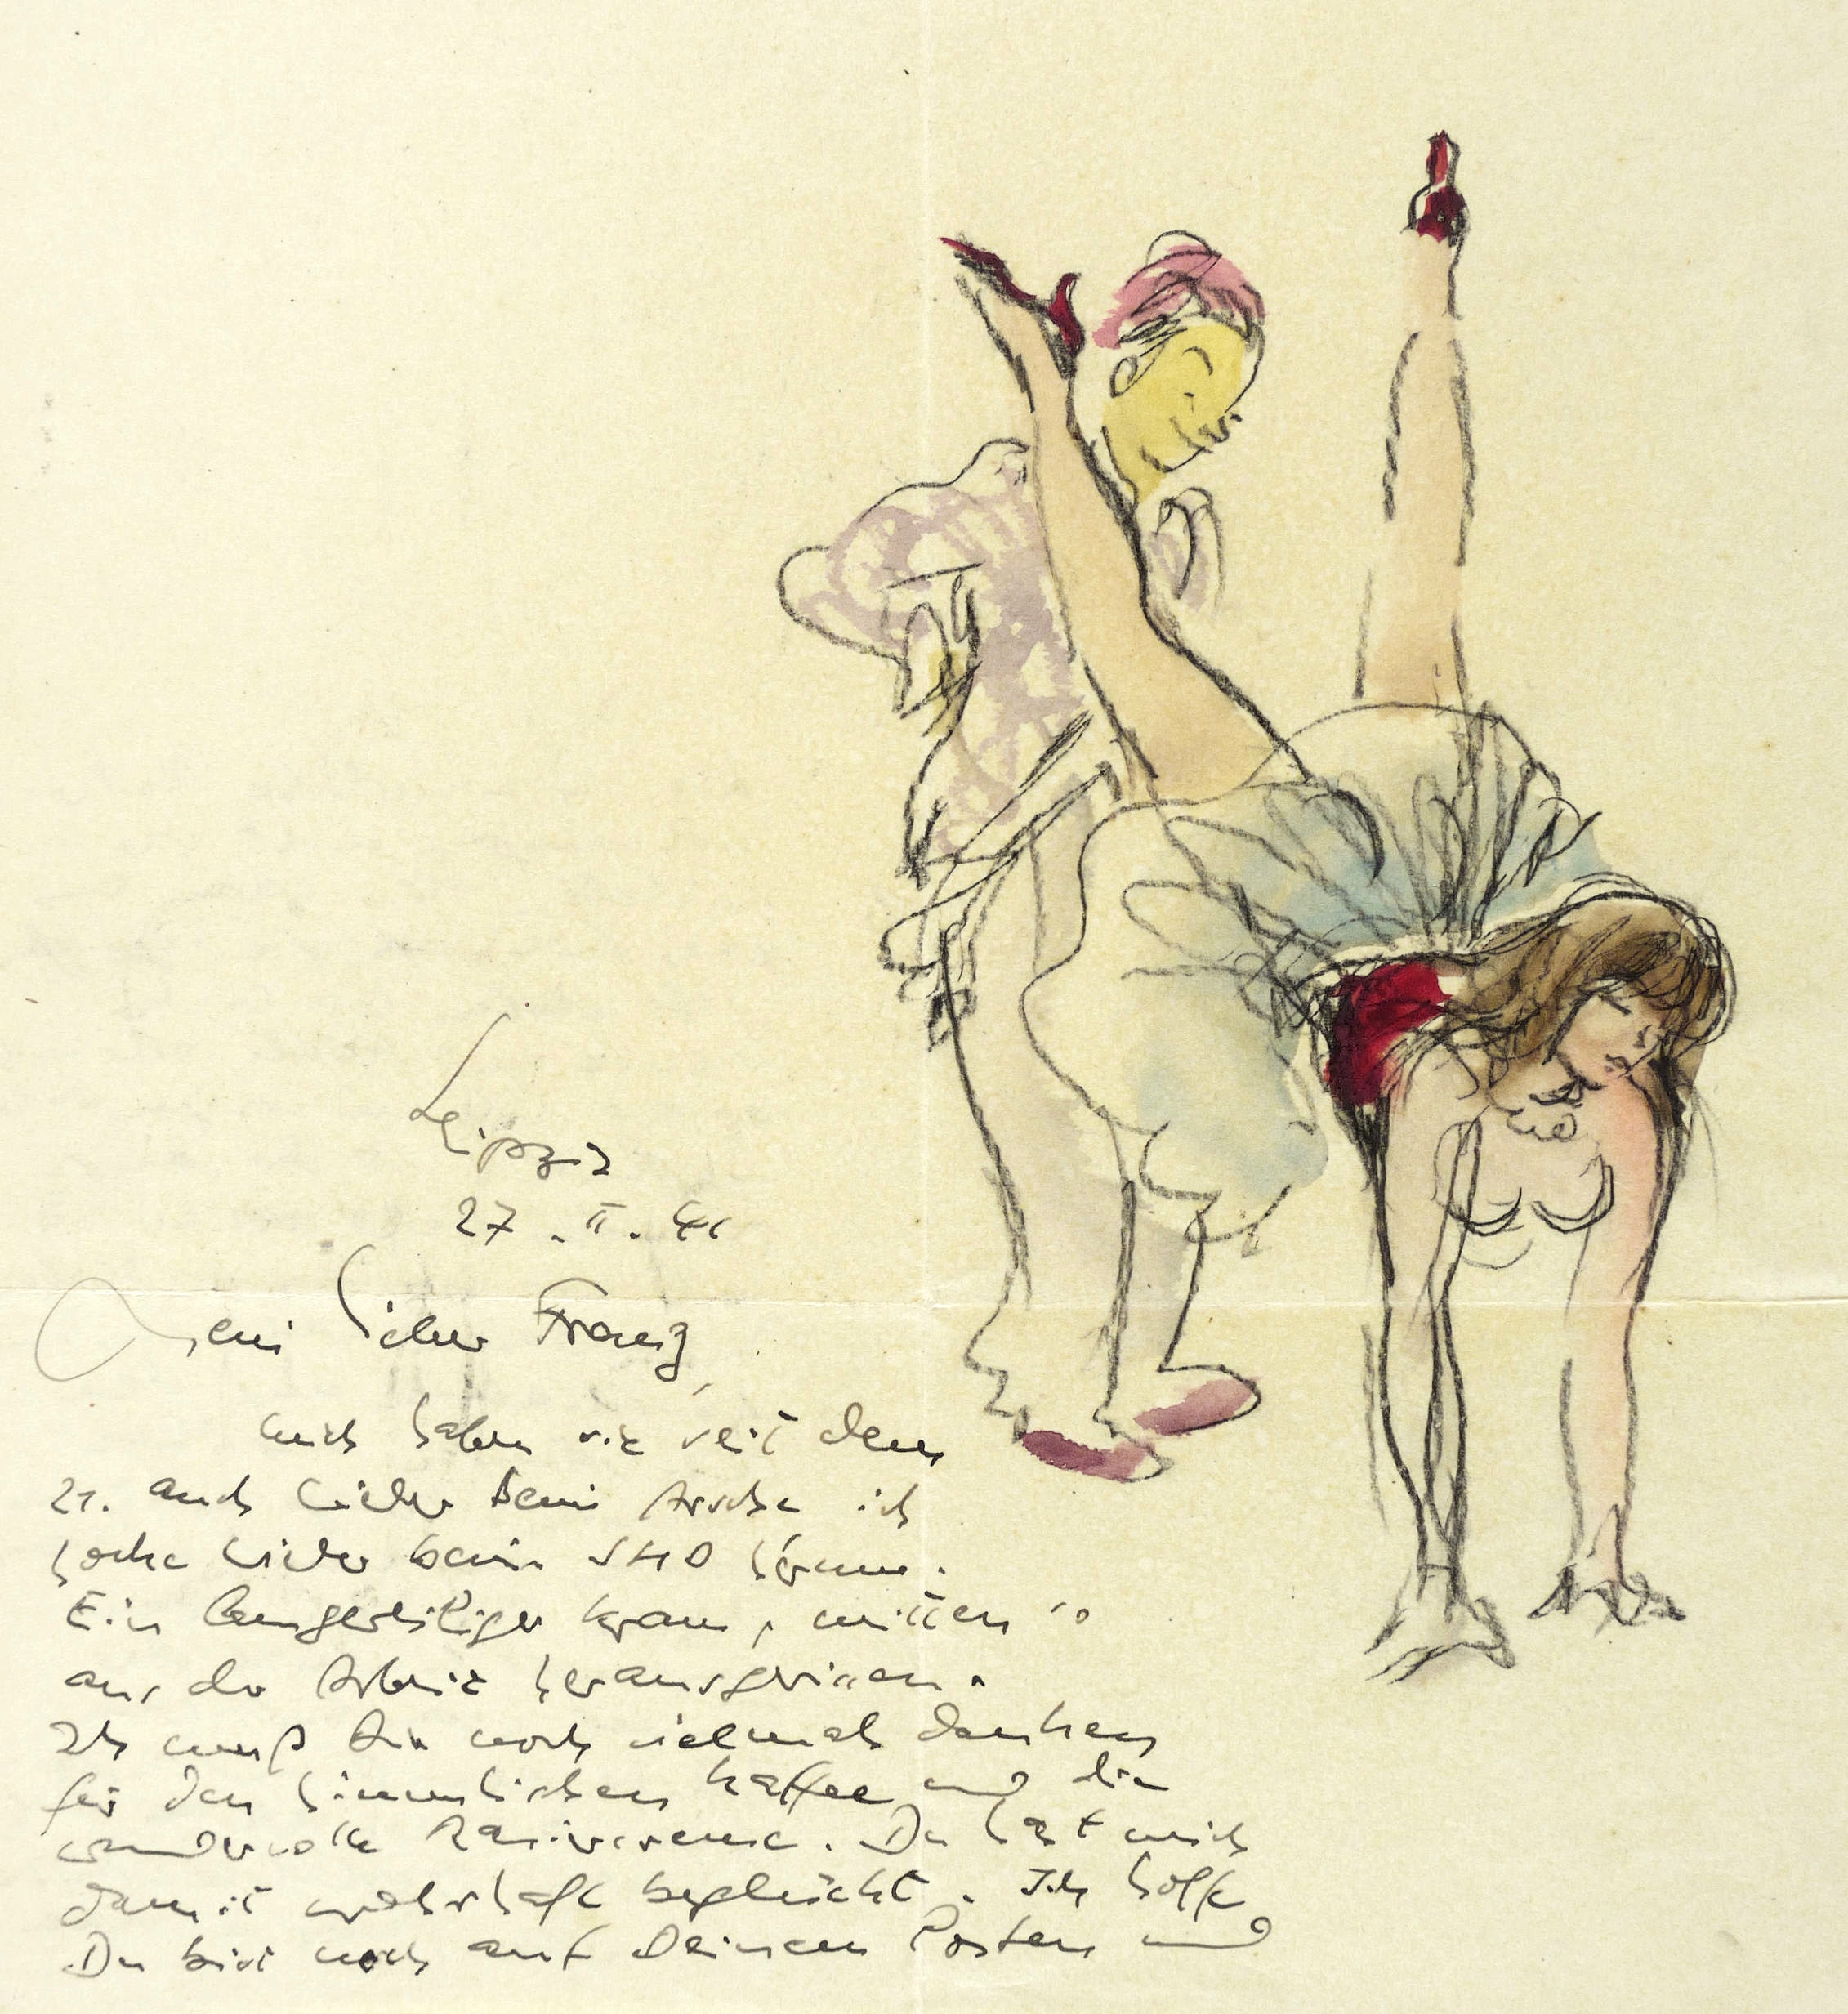 Leipzig
27. II. 41
Mein lieber Franz,
mich haben sie seit dem
21. auch wieder beim Arsche ich
hocke wieder beim SHD herum.
Ein langweiliger Kram, mitten so
aus der Arbeit herausgerissen.
Ich muß Dir noch vielmals danken
für den himmlischen Kaffee und die
wundervolle Rasiercreme. Du hast mich
damit wahrhaft beglückt. Ich hoffe
Du bist noch auf Deinem Posten und